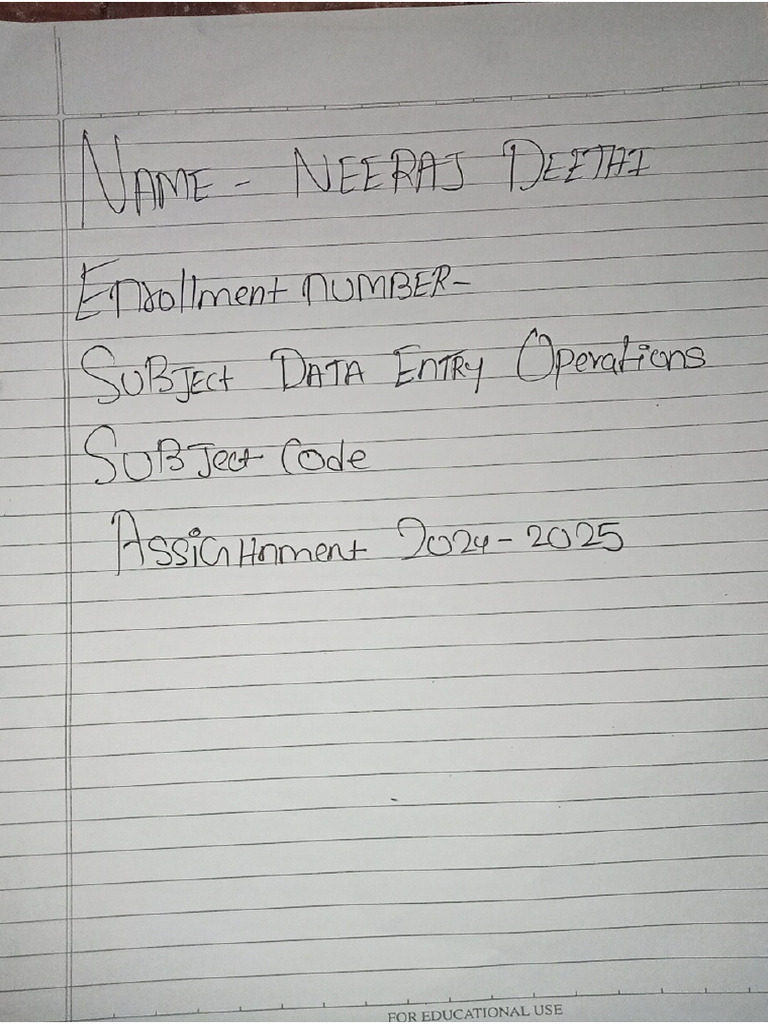 NAME - NEERAJ DEETHI
Enrollment NUMBER-
SUBJECT DATA ENTRY Operations
SUBJect Code
AssiGHnment 2024-2025
FOR EDUCATIONAL USE